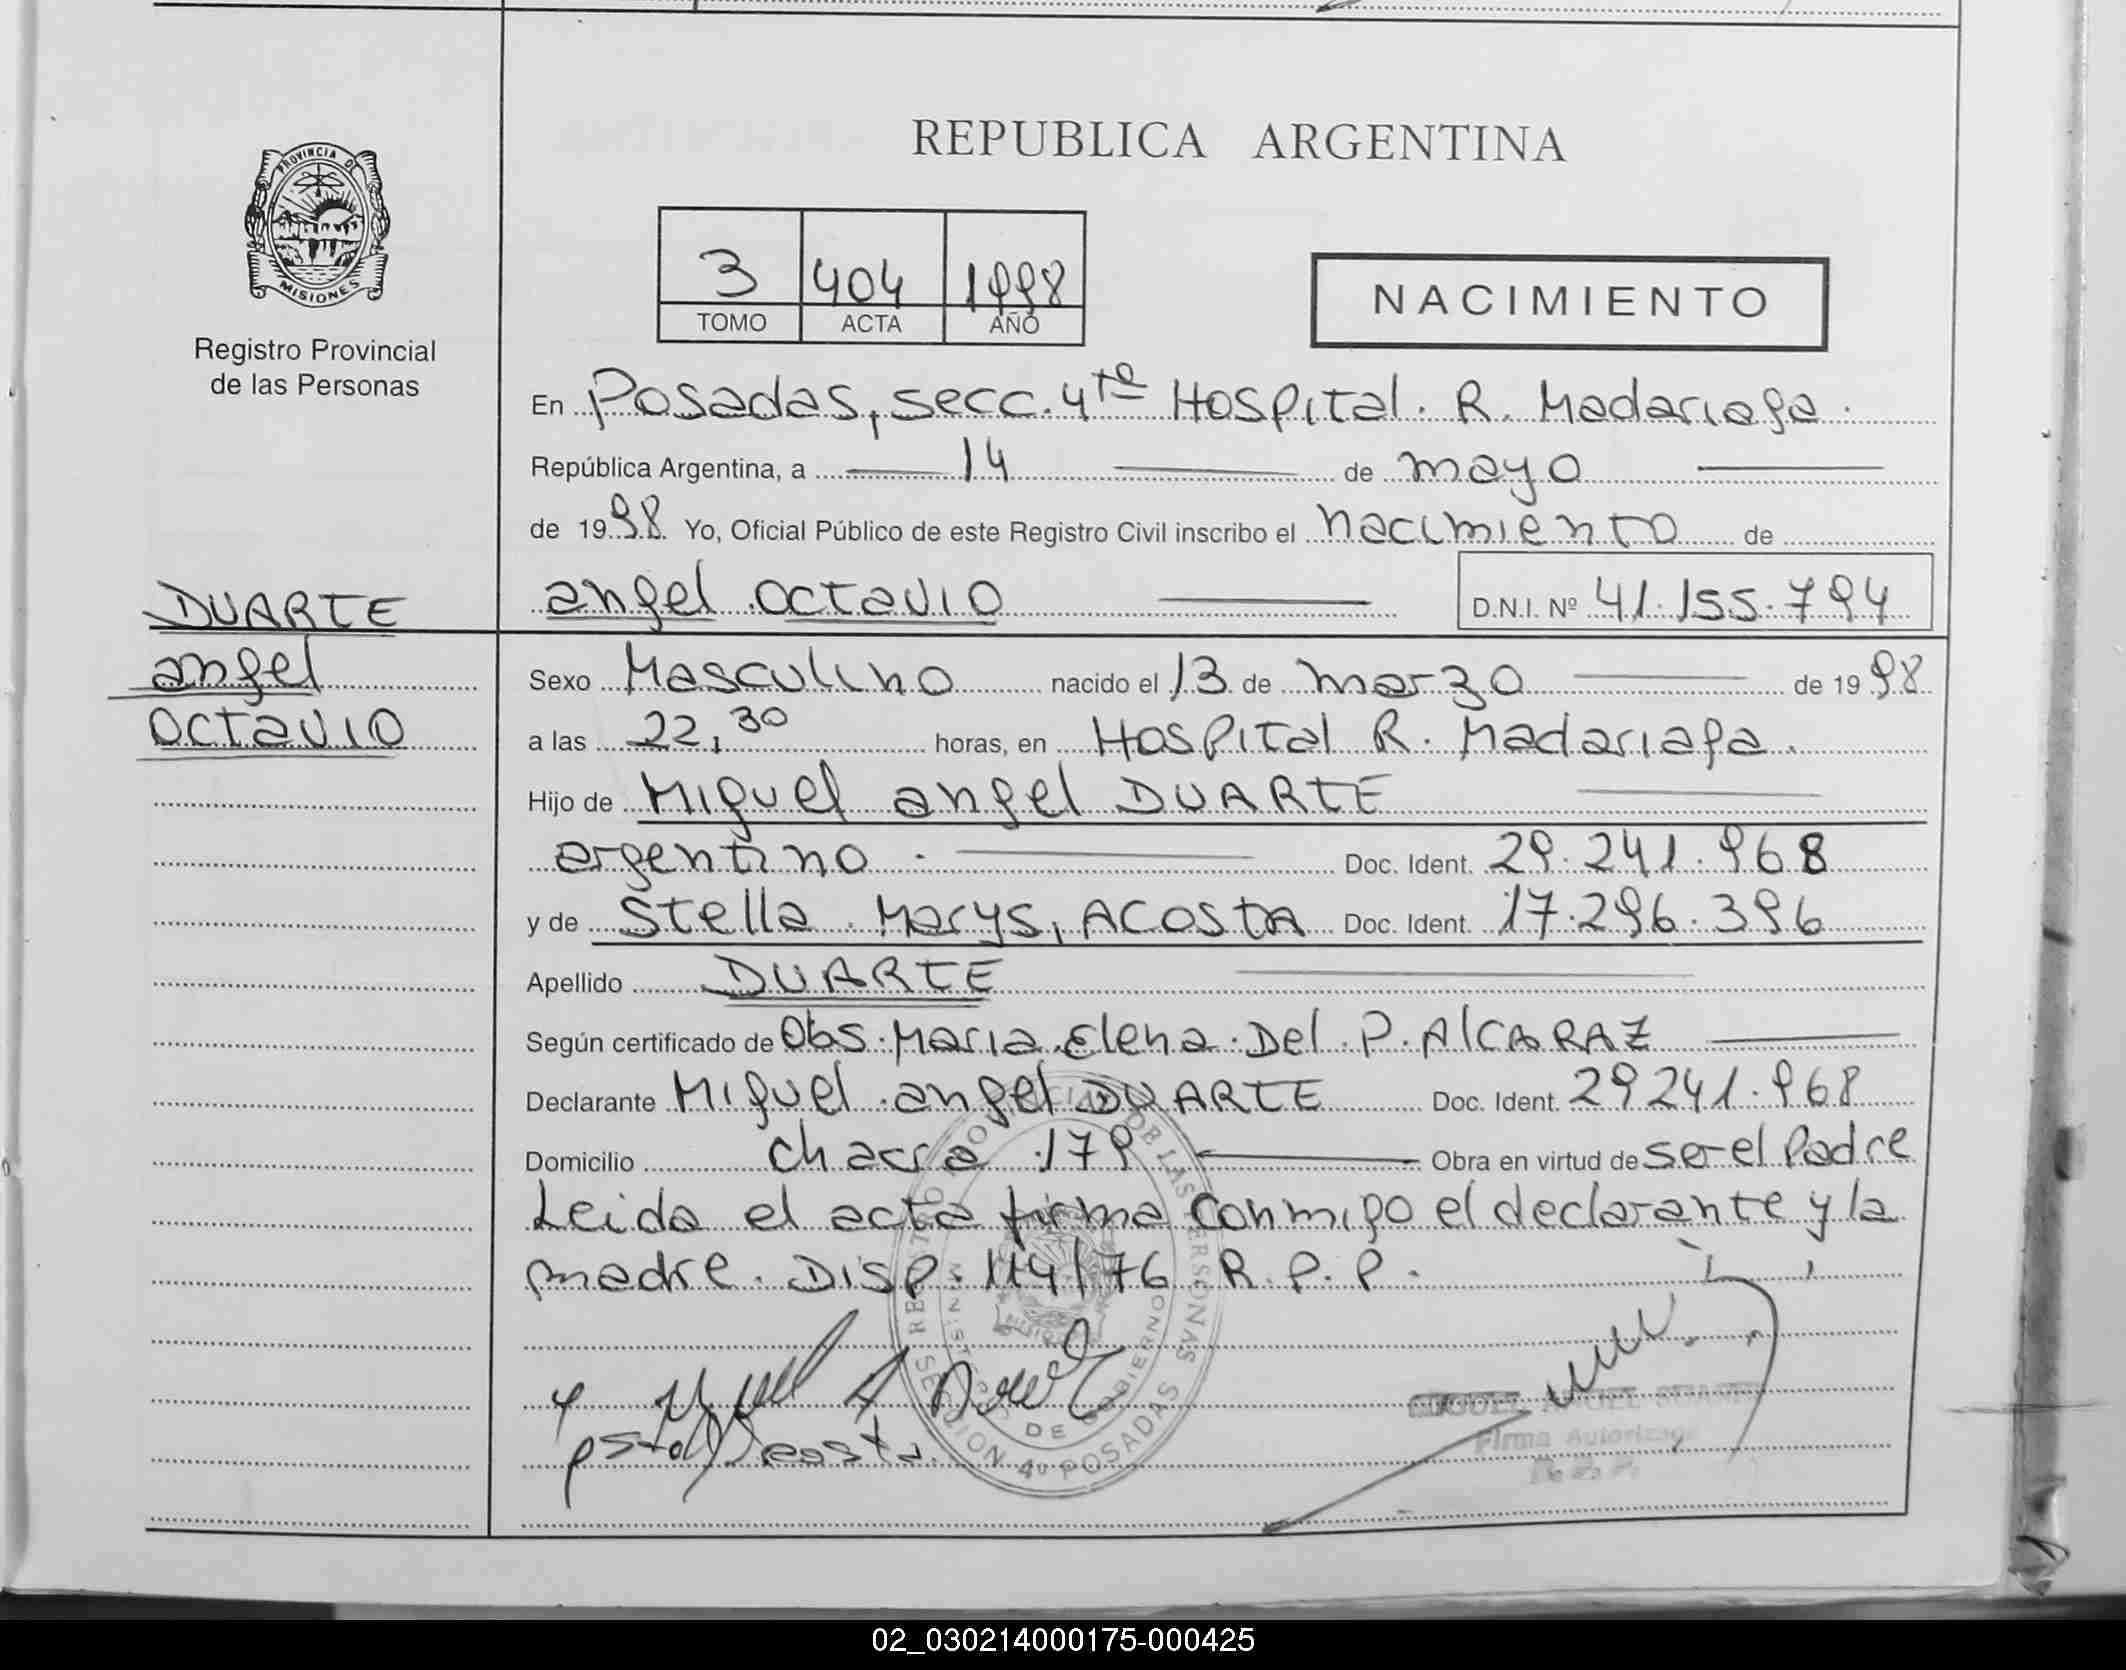 REPUBLICA ARGENTINA
PROVINCIA DE
MISIONES
Registro Provincial
de las Personas
3 404 1998
TOMO ACTA AÑO
NACIMIENTO
En Posadas, secc. 4ta Hospital. R. Madariaga.
República Argentina, a 14 de mayo
de 1998. Yo, Oficial Público de este Registro Civil inscribo el nacimiento de
DUARTE
angel
octavio
angel octavio D.N.I. Nº 41.155.794
Sexo Masculino nacido el 13 de marzo de 1998
a las 22,30 horas, en Hospital R. Madariaga.
Hijo de Miguel angel DUARTE
argentino. Doc. Ident. 29.241.968
y de Stella Marys, ACOSTA Doc. Ident. 17.296.396
Apellido DUARTE
Según certificado de Obs. Maria Elena Del P. AlCARAZ
Declarante Miguel angel DUARTE Doc. Ident. 29241.968
Domicilio chacra 179 Obra en virtud de ser el Padre
Leida el acta firma conmigo el declarante y la
madre. Disp. 114/76 R.P.P.
REGISTRO PROVINCIAL DE LAS PERSONAS
MINISTERIO DE GOBIERNO
SECCION 4º POSADAS
MIGUEL ANGEL
Firma Autorizada
02_030214000175-000425